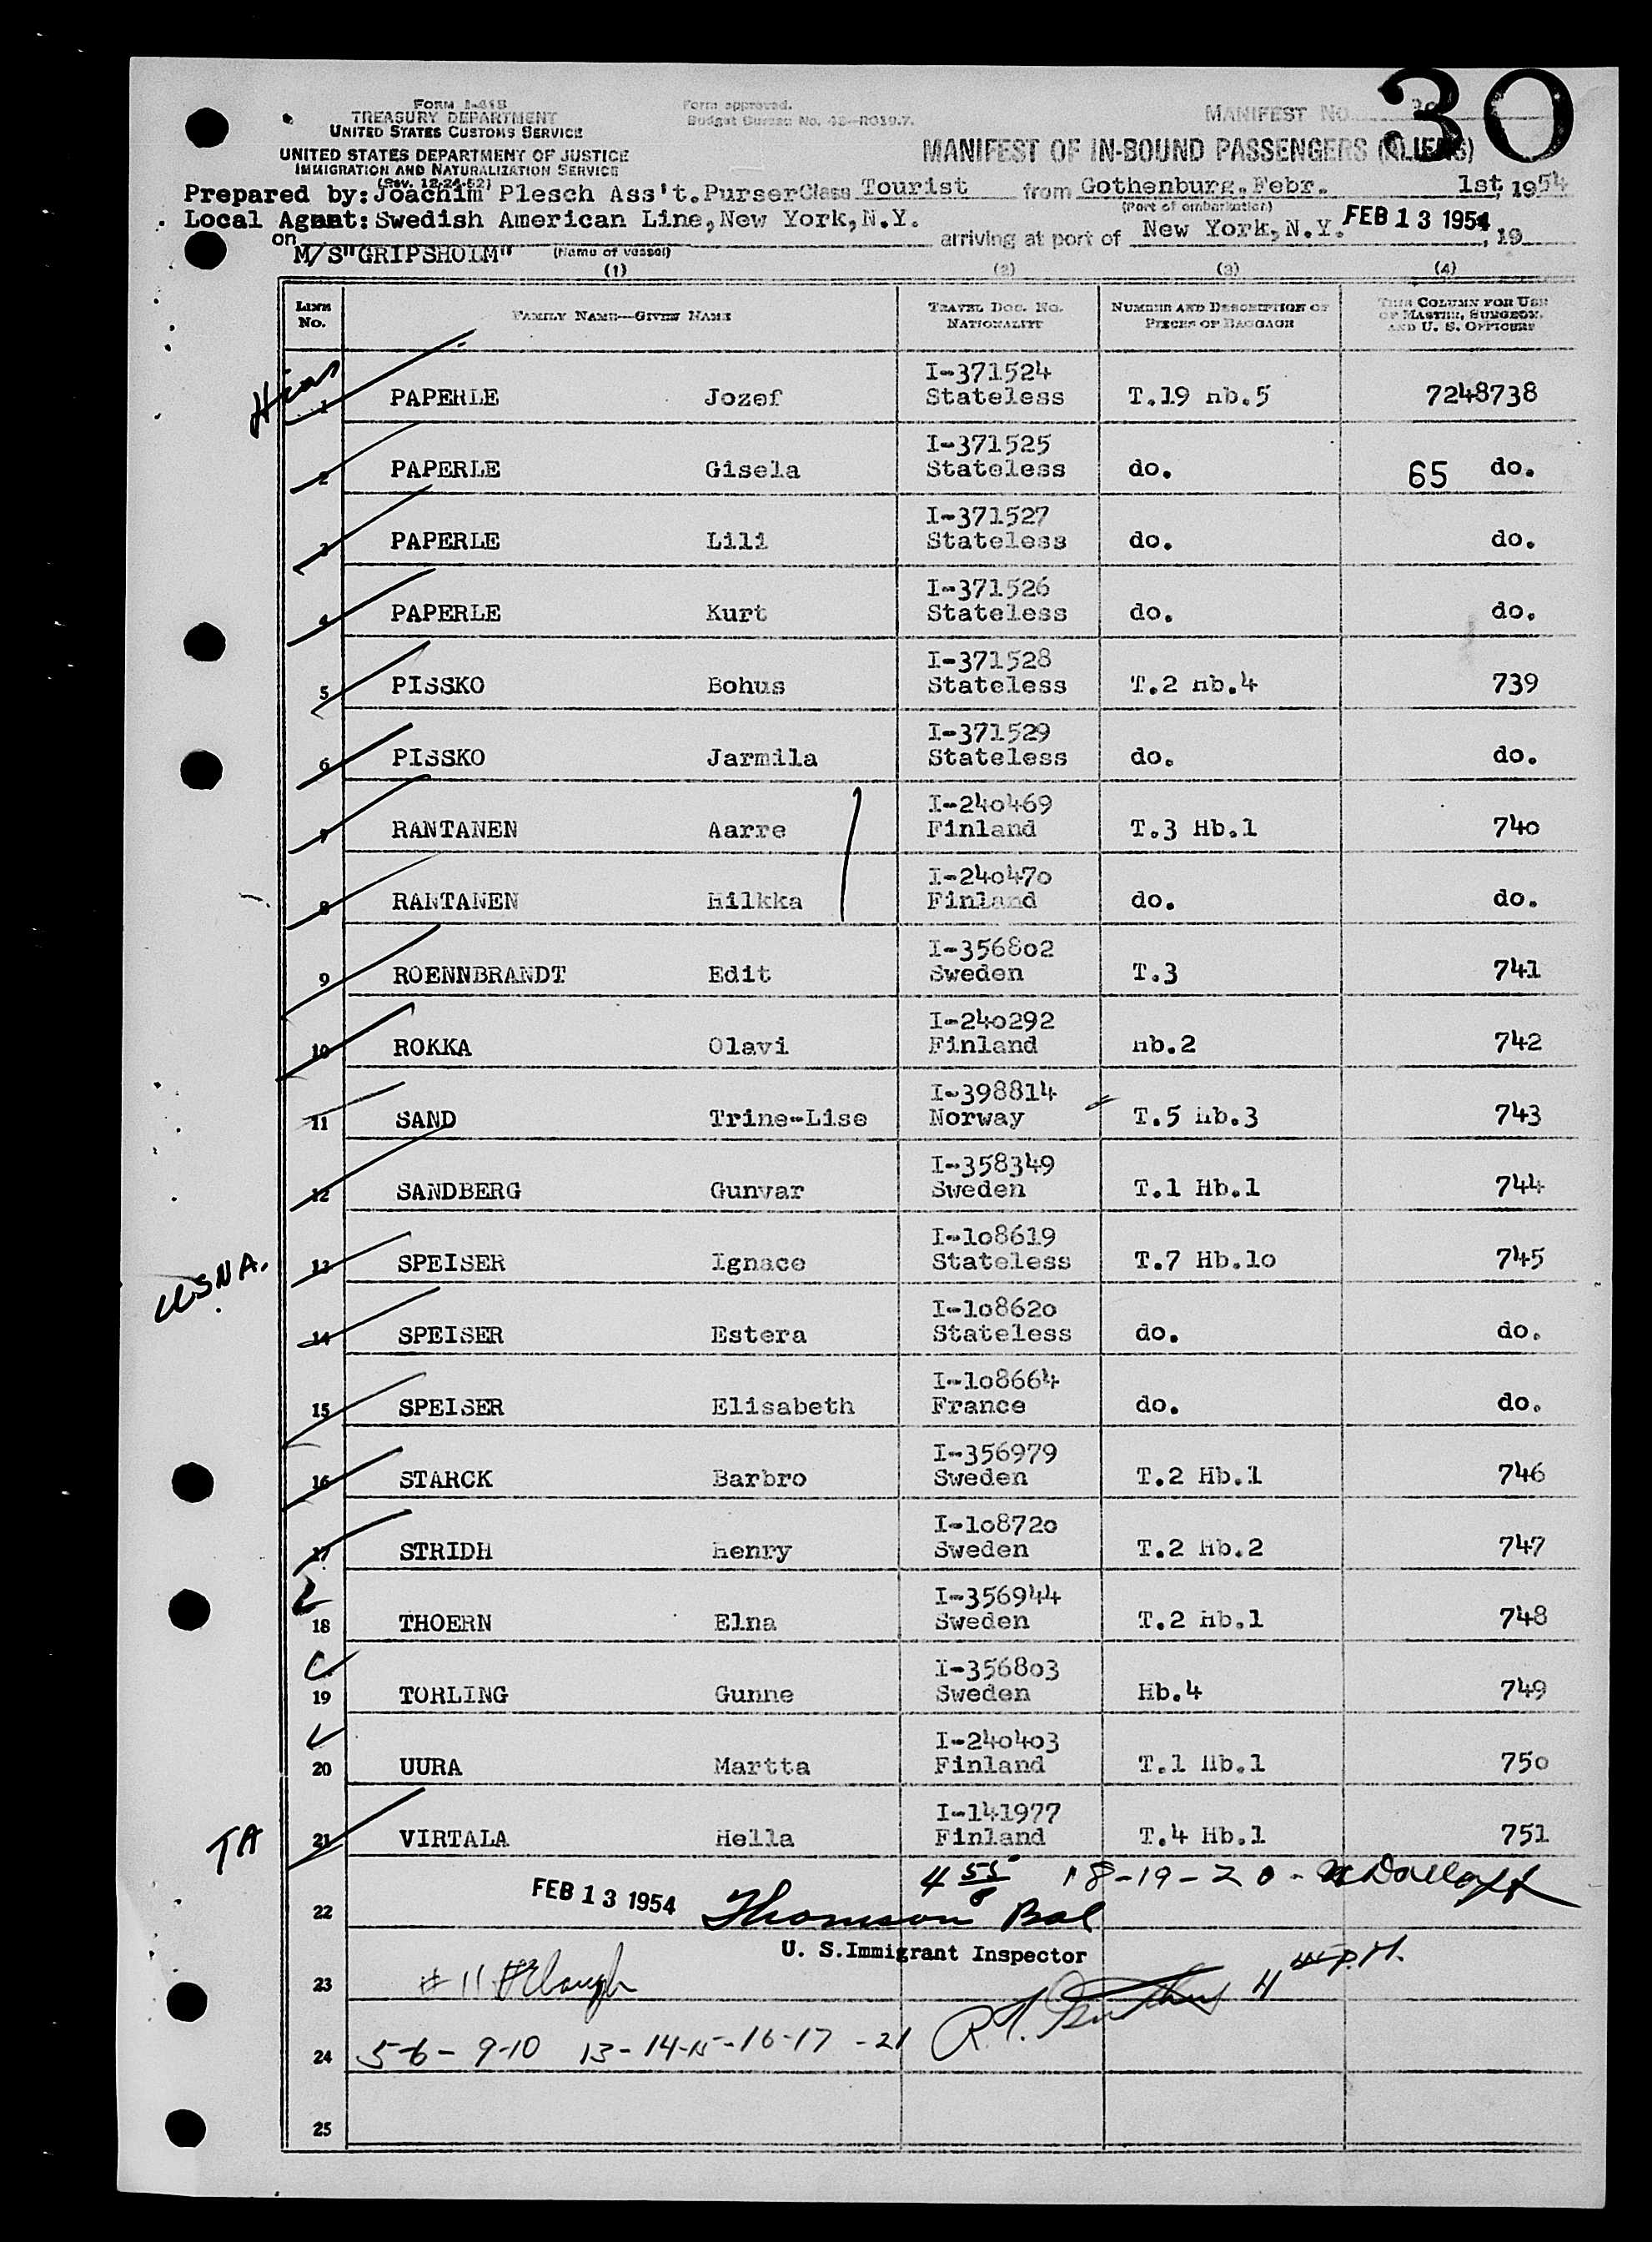 30
FORM I-418
TREASURY DEPARTMENT
UNITED STATES CUSTOMS SERVICE
UNITED STATES DEPARTMENT OF JUSTICE
IMMIGRATION AND NATURALIZATION SERVICE
(Rev. 12-24-52)
Form approved.
Budget Bureau No. 43-R019.7.
MANIFEST NO.
MANIFEST OF IN-BOUND PASSENGERS (ALIENS)
Prepared by: Joachim Plesch Ass't. Purser Class Tourist from Gothenburg, Febr. 1st, 1954
(Port of embarkation)
Local Agent: Swedish American Line, New York, N.Y.
on M/S "GRIPSHOLM" (Name of vessel) arriving at port of New York, N.Y. FEB 13 1954, 19
(1) (2) (3) (4)
LINE No. FAMILY NAME—GIVEN NAME TRAVEL DOC. NO. NATIONALITY NUMBER AND DESCRIPTION OF PIECES OF BAGGAGE THIS COLUMN FOR USE OF MASTER, SURGEON, AND U. S. OFFICERS
Hias
I-371524
1 PAPERLE Jozef Stateless T.19 Hb.5 7248738
I-371525
2 PAPERLE Gisela Stateless do. 65 do.
I-371527
3 PAPERLE Lili Stateless do. do.
I-371526
4 PAPERLE Kurt Stateless do. do.
I-371528
5 PISSKO Bohus Stateless T.2 Hb.4 739
I-371529
6 PISSKO Jarmila Stateless do. do.
I-240469
7 RANTANEN Aarre Finland T.3 Hb.1 740
I-240470
8 RANTANEN Hilkka Finland do. do.
I-356802
9 ROENNBRANDT Edit Sweden T.3 741
I-240292
10 ROKKA Olavi Finland Hb.2 742
I-398814
11 SAND Trine-Lise Norway T.5 Hb.3 743
I-358349
12 SANDBERG Gunvar Sweden T.1 Hb.1 744
USNA.
I-108619
13 SPEISER Ignace Stateless T.7 Hb.10 745
I-108620
14 SPEISER Estera Stateless do. do.
I-108664
15 SPEISER Elisabeth France do. do.
I-356979
16 STARCK Barbro Sweden T.2 Hb.1 746
I-108720
17 STRIDH Henry Sweden T.2 Hb.2 747
I-356944
18 THOERN Elna Sweden T.2 Hb.1 748
I-356803
19 TORLING Gunne Sweden Hb.4 749
I-240403
20 UURA Martta Finland T.1 Hb.1 750
I-141977
TA 21 VIRTALA Hella Finland T.4 Hb.1 751
4 55 18-19-20-
22 FEB 13 1954 Thomson Bal
U. S. Immigrant Inspector
23 #11 4 P.M.
24 5-6- 9-10 13-14-15-16-17 -21
25